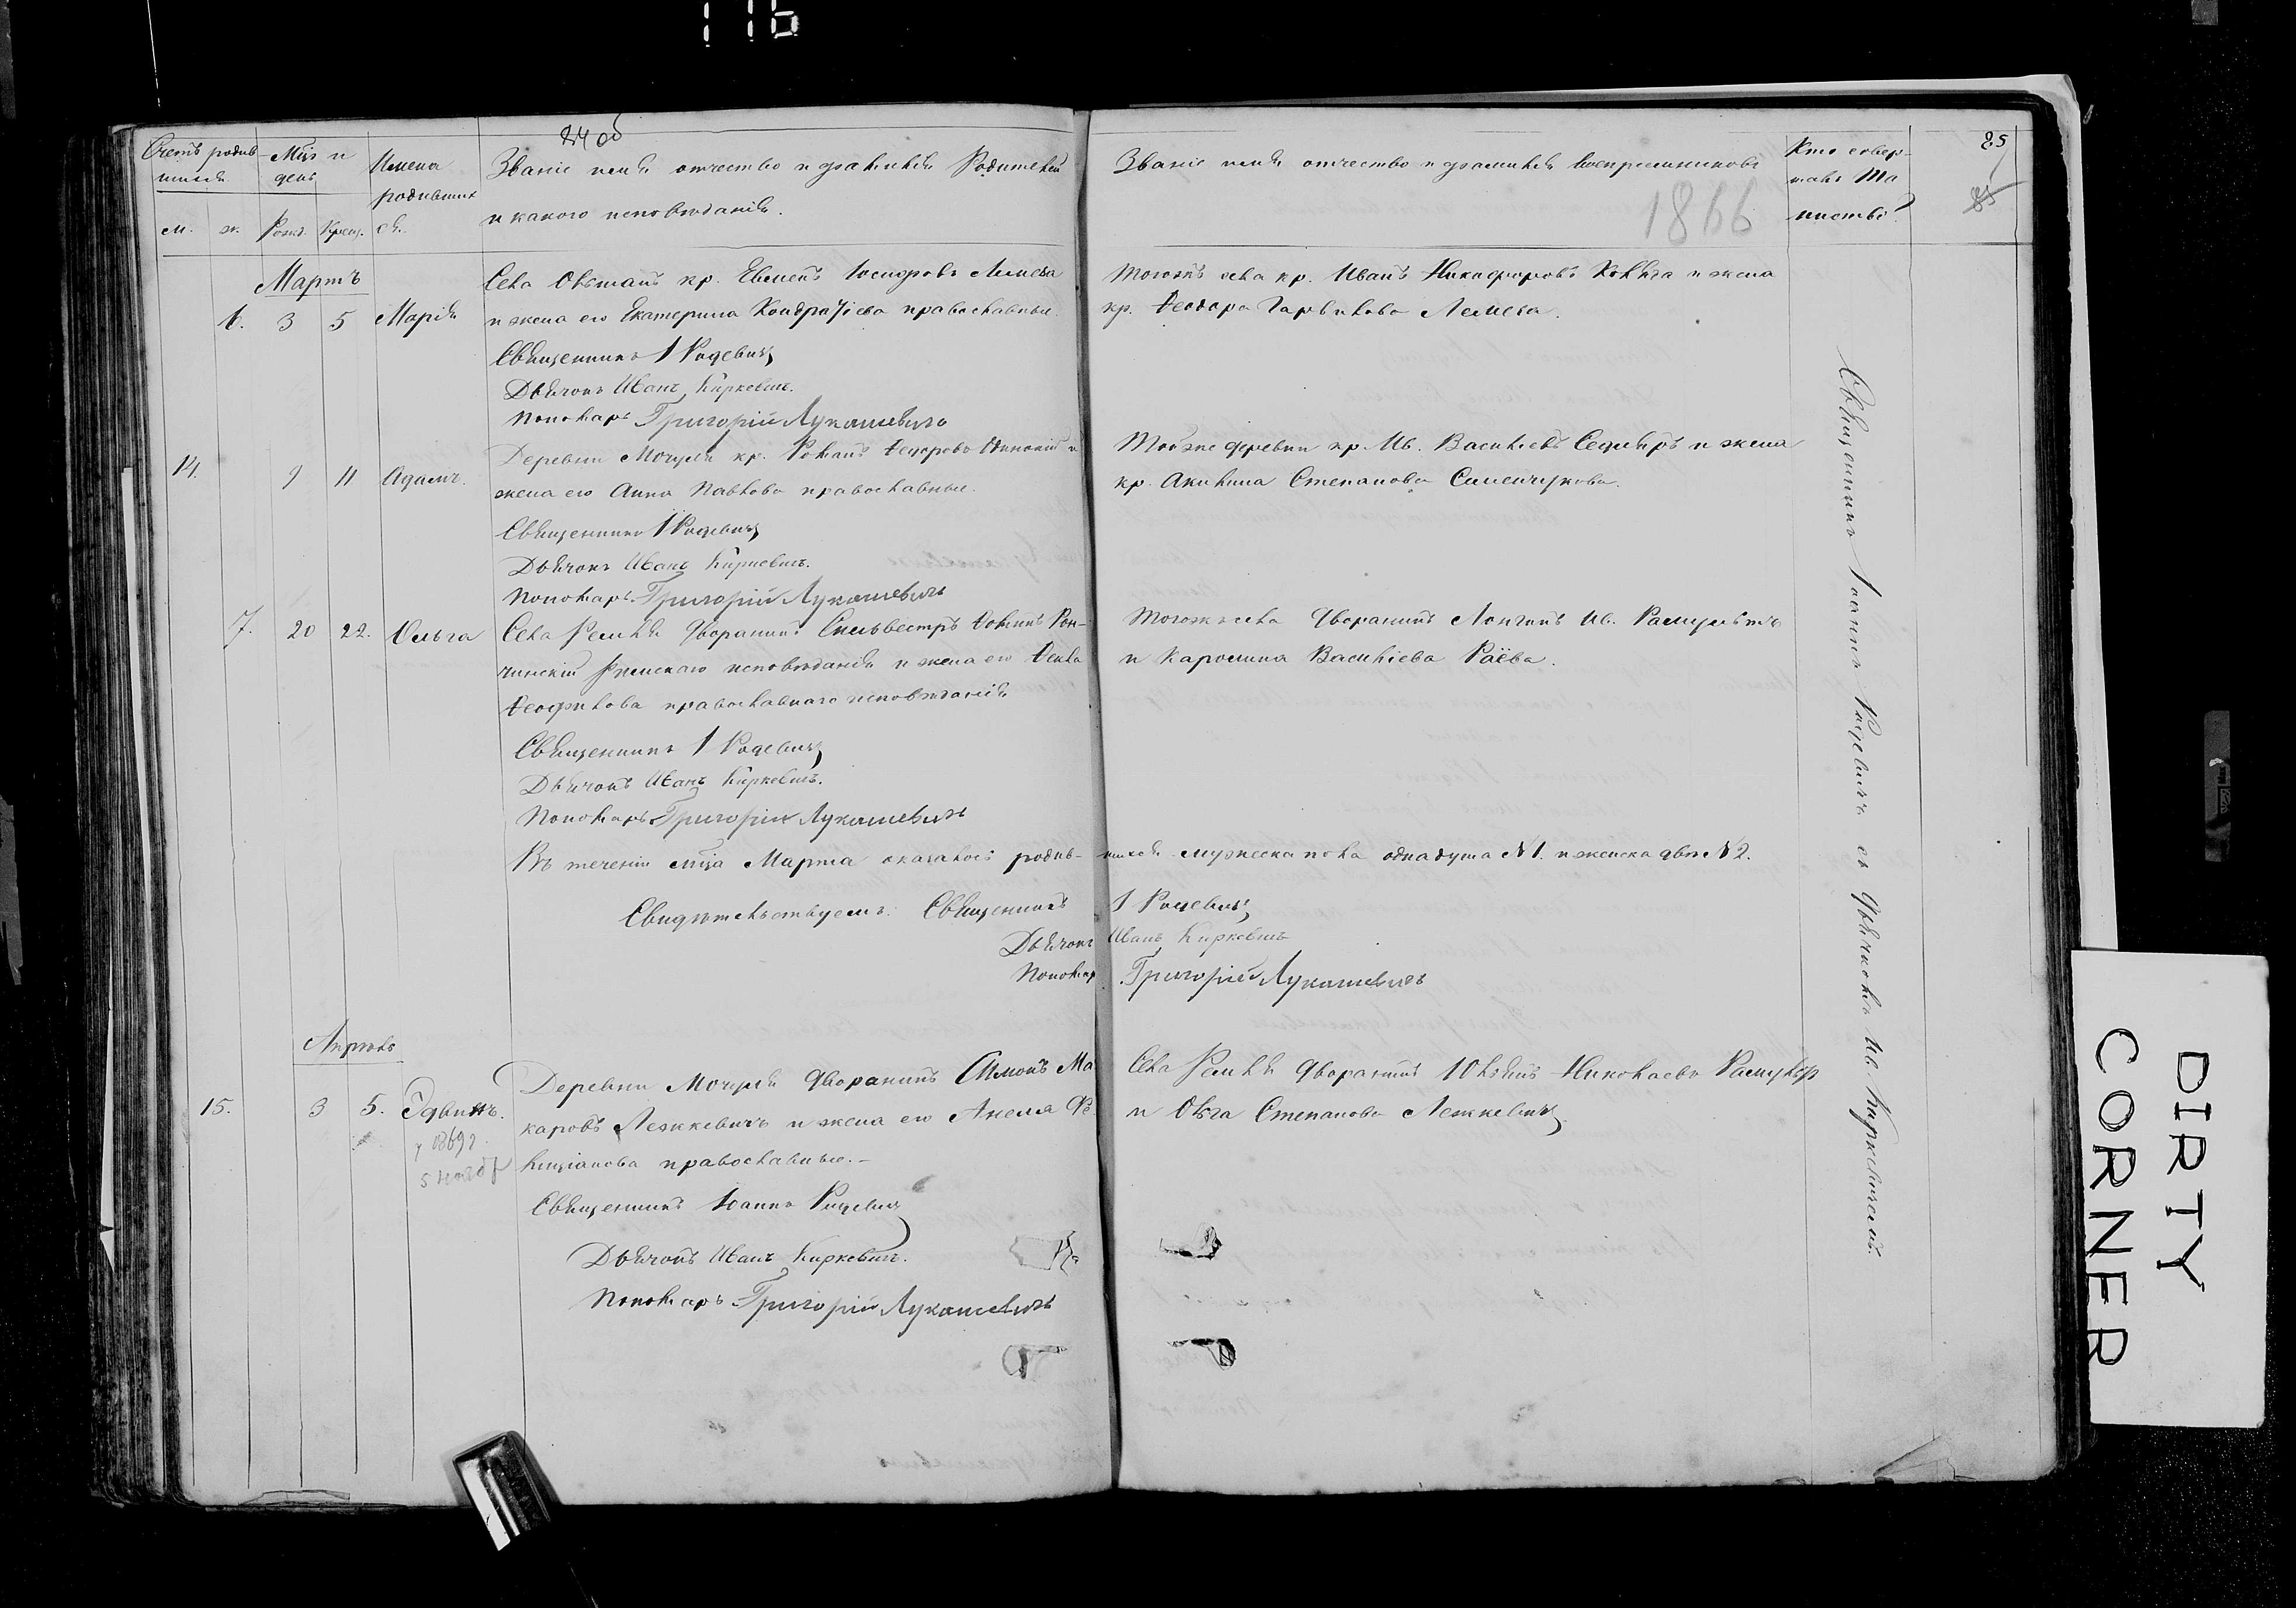 116
84 об
Счетъ родив-
шихся
Мцъ и
день
Имена
родивших
ся.
Званіе имя отчество и фамилія Родителей
и какого исповѣданія.
м. ж. Рожд. Крещ.
Званіе имя отчество и фамилія воспреемниковъ
1866
Кто совер-
шалъ Та
инство?
85
85
Мартъ
6. 3 5 Марія
Села кр. Евмены
и жена его Екатерина православные.
Священникъ І Радевичъ
Дьячокъ Иванъ Киркевичъ.
Пономарь Григорій Лукашевичъ
Тогожъ села кр. Иванъ Никифоровъ и жена
кр. Ѳеодора
14. 9 11 Адамъ.
Деревни Мочуля кр. Романъ Ѳедоровъ и
жена его Анна Павлова православные.
Священникъ І Радевичъ
Дьячокъ Иванъ Киркевичъ.
Пономарь Григорій Лукашевичъ
Тойже деревни кр. Ив. Васильевъ и жена
кр. Акилина Степанова
7. 20 22. Ольга
Села дворянинъ Сильвестръ
Римскаго исповѣданія и жена его Ѳекла
Ѳеофилова православнаго исповѣданія
Священникъ І Радевичъ
Дьячокъ Иванъ Киркевичъ.
Пономарь Григорій Лукашевичъ
Тогожъ села дворянинъ Лонгинъ Ив.
и Каролина Васильева Раёва.
Въ теченіи мца Марта оказалось родив- шихся мужеска пола одна душа №1. и женска двѣ №2.
Свидѣтельствуемъ: Священникъ І Радевичъ
Дьячокъ Иванъ Киркевичъ
Пономарь Григорій Лукашевичъ
Апрѣль
15. 3 5. Эдвинъ.
5 ноябр
Деревни Мочуля дворянинъ Симонъ Ма
каровъ Лежкевичъ и жена его Анеля
православные.—
Священникъ Іоаннъ Радевичъ
Дьячокъ Иванъ Киркевичъ.
Пономарь Григорій Лукашевичъ
Села дворянинъ Юліянъ Николаевъ
и Ольга Степанова Лежкевичъ
Священникъ Іоаннъ Радевичъ съ дьячкомъ Ив. Киркевичемъ.
DIRTY
CORNER